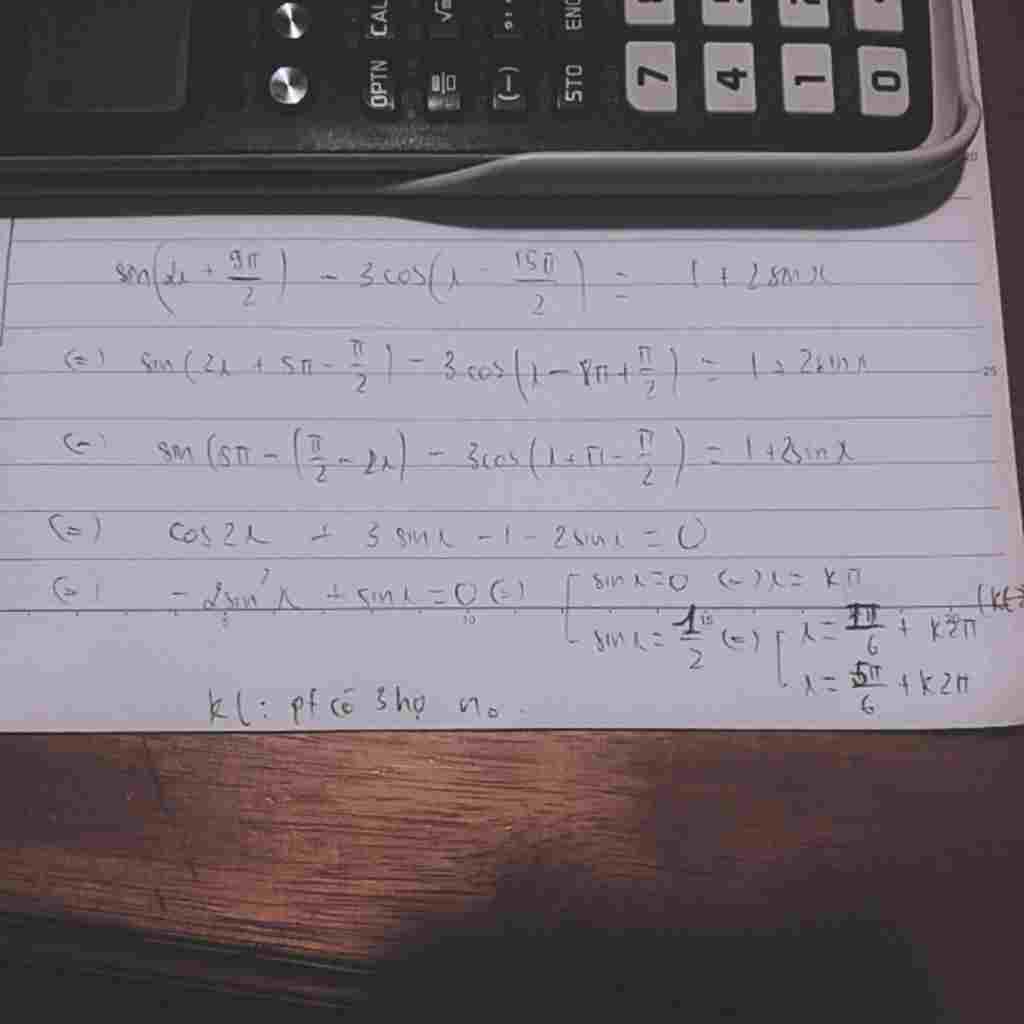 CAL
OPTN
(−)
ENG
STO
7
4
1
0
sin(2x + 9π/2) − 3cos(x − 15π/2) = 1 + 2sinx
(=) sin(2x + 5π − π/2) − 3cos(x − 8π + π/2) = 1 + 2sinx
(=) sin(5π − (π/2 − 2x) − 3cos(x + π − π/2) = 1 + 2sinx
(=) cos2x + 3sinx − 1 − 2sinx = 0
(=) −2sin²x + sinx = 0 (=) [ sinx = 0 (=) x = kπ
sinx = 1/2 (=) [ x = π/6 + k2π (k∈
x = 5π/6 + k2π
kl: pt có 3 họ no.